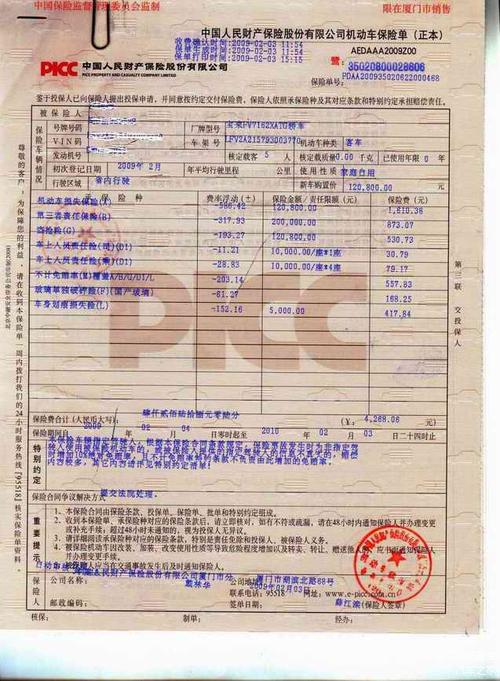 中国保险监督管理委员会监制
限在厦门市销售
中国人民财产保险股份有限公司机动车保险单（正本）
收费确认时间:2009-02-03 11:54
保单生成时间:2009-02-03 11:54
保单打印时间:2009-02-03 15:15
AEDAAA2009Z00
PICC 中国人民财产保险股份有限公司
PICC PROPERTY AND CASUALTY COMPANY LIMITED
號: 35020800028606
保险单号: PDAA200935020622000468
鉴于投保人已向保险人提出投保申请，并同意按约定交付保险费，保险人依照承保险种及其对应条款和特别约定承担赔偿责任。
被保险人
保险车辆情况
号牌号码
厂牌型号 宝来FV7162XATG轿车
VIN码
发动机号
核定载客 5 人 核定载质量 0.00 千克 已使用年限 0 年
机动车种类 客车
初次登记日期 2009年2月 年平均行驶里程 公里 使用性质 家庭自用
行驶区域 省内行驶 新车购置价 120,800.00
承保险种 费率浮动（±） 保险金额/责任限额（元） 保险费（元）
机动车损失保险(A) -586.42 120,800.00 1,610.38
第三者责任保险(B) -317.93 200,000.00 873.07
盗抢险(G) -193.27 120,800.00 530.73
车上人员责任险(司)(D1) -11.21 10,000.00/座*1座 30.79
车上人员责任险(乘)(D1) -28.83 10,000.00/座*4座 79.17
不计免赔率(M)覆盖A/B/G/D1/L -203.14 557.83
玻璃单独破碎险(F)(国产玻璃) -61.27 168.25
车身划痕损失险(L) -152.16 5,000.00 417.84
PICC
保险费合计（人民币大写） 肆仟贰佰陆拾捌元零陆分 （￥: 4,268.06 元）
保险期间自 2009 年 02 月 04 日零时起至 2010 年 02 月 03 日二十四时止
特别约定
保险合同争议解决方式 提交法院处理。
重要提示
1、本保险合同由保险条款、投保单、保险单、批单和特别约定组成。
2、收到本保险单、承保险种对应的保险条款后，请立即核对，如有不符或疏漏，请在48小时内通知保险人并办理变更
或补充手续；超过48小时未通知的，视为投保人无异议。
3、请详细阅读承保险种对应的保险条款，特别是责任免除和投保人、被保险人义务。
4、被保险机动车因改装、加装、改变使用性质等导致危险程度增加以及转卖、转让、赠送他人的，应书面通知保险人并办理变更手续。
5、被保险人应当在交通事故发生后及时通知保险人。
保险人
公司地址: 厦门市湖滨北路68号
邮政编码:
联系电话: 95518 网址: www.e-picc.com.cn
2009年02月03日
（保险人签章）
核保: 戴林华 制单: 经办: 薛江滨
第三联 交投保人
尊敬的客户，为保障您的利益，请在收到本保险单一周内拨打我们的24小时服务热线“95518”核实保险单资料。